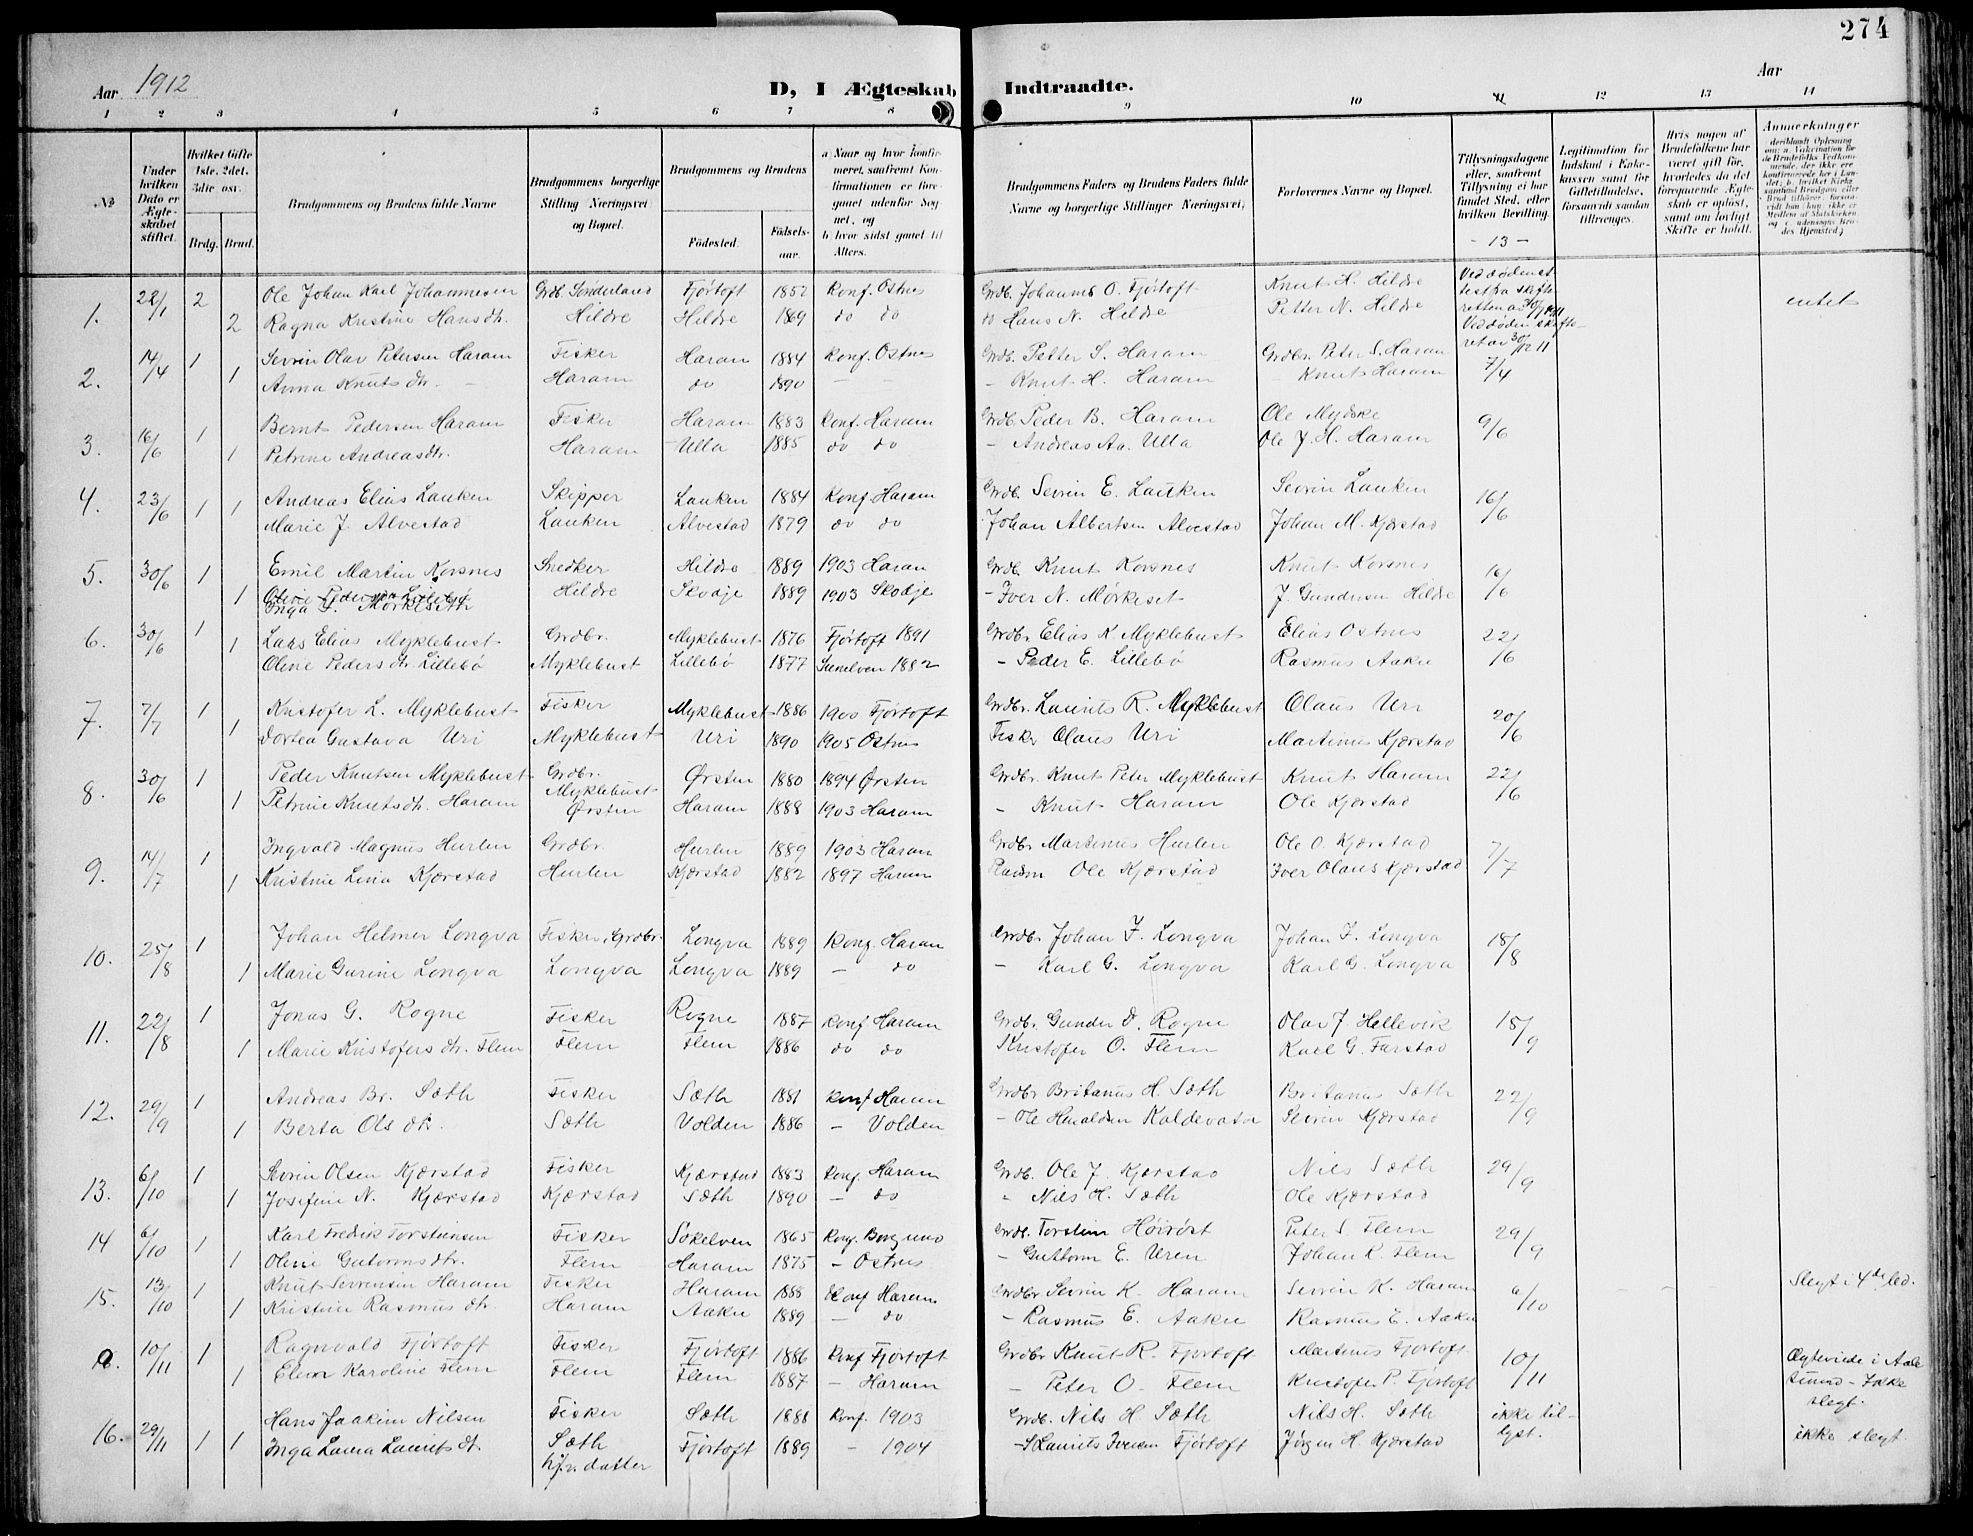 274
Aar 1912
D, I Ægteskab Indtraadte.
Aar
1 2 3 4 5 6 7 8 9 10 11 12 13 14
№
Under hvilken Dato er Ægteskabet stiftet.
Hvilket Gifte 1ste. 2det. 3die osv.
Brdg. Brud.
Brudgommens og Brudens fulde Navne
Brudgommens borgerlige Stilling Næringsvei og Bopæl.
Brudgommens og Brudens
Födested.
Födselsaar.
a Naar og hvor konfirmeret, saafremt Konfirmationen er foregaaet udenfor Sognet, og
b hvor sidst gaaet til Alters.
Brudgommens Faders og Brudens Faders fulde Navne og borgerlige Stillinger Næringsvei,
Forlovernes Navne og Bopæl.
Tillysningsdagene eller, saafremt Tillysning ei har fundet Sted, efter hvilken Bevilling.
- 13 -
Legitimation for Indskud i Enkekassen samt for Giftetilladelse, forsaavidt saadan tiltrænges.
Hvis nogen af Brudefolkene har været gift før, hvorledes da det foregaaende Ægteskab er oplöst, samt om lovligt Skifte er holdt.
Anmerkninger
1. 22/1 2 Ole Johan Karl Johannesen Grdb. Sønderland Fjörtoft 1852 Konf. Ostnes Grdb. Johannes O. Fjörtoft Knut H. Hildre
2 Ragna Kristine Hansdtr. Hildre Hildre 1869 do do do Hans N. Hildre Petter N. Hildre intet
2. 14/4 1 Sevrin Olav Petersen Haram Fisker Haram 1884 Konf. Ostnes Grdb. Petter S. Haram Grdbr. Peter S. Haram 7/4
1 Anna Knutsdtr. - Haram do 1890 - - - Knut H. Haram Knut Haram
3. 16/6 1 Bernt Pedersen Haram Fisker Haram 1883 Konf. Haram Grdb. Peder B. Haram Ole Mydske 9/6
1 Petrine Andreasdtr. Haram Ulla 1885 do do - Andreas Aa. Ulla Ole J. H. Haram
4. 23/6 1 1 Andreas Elias Lauken Skipper Lauken 1884 Konf. Haram Grdb. Sevrin E. Lauken Sevrin Lauken 16/6
Marie J. Alvestad Lauken Alvestad 1879 do do Johan Albertsen Alvestad Johan M. Kjærstad
5. 30/6 1 Emil Martin Korsnes Snedker Hildre 1889 1903 Haram Grdb. Knut Korsnes Knut Korsnes 16/6
1 Inga I. Mørkeseth Hildre Skodje 1889 1903 Skodje - Iver N. Mørkeset J. Gundersen Hildre
6. 30/6 1 Lars Elias Myklebust Grdbr. Myklebust 1876 Fjörtoft 1891 Grdbr. Elias K. Myklebust Elias Ostnes 22/6
1 Oline Pedersdtr. Lillebö Myklebust Lillebö 1877 Sunelven 1882 - Peder E. Lillebö Rasmus Aakre
7. 7/7 1 Kristofer L. Myklebust Fisker Myklebust 1886 1900 Fjörtoft Grdbr. Laurits R. Myklebust Olaus Uri 20/6
1 Dortea Gustava Uri Myklebust Uri 1890 1905 Ostnes Fisker Olaus Uri Martinus Kjærstad
8. 30/6 1 Peder Knutsen Myklebust Grdbr. Myklebust Ørsten 1880 1894 Ørsten Grdbr. Knut Peter Myklebust Knut Haram 22/6
1 Petrine Knutsdtr. Haram Ørsten Haram 1888 1903 Haram - Knut Haram Ole Kjærstad
9. 14/7 1 Ingvald Magnus Hurlen Grdbr. Hurlen 1889 1903 Haram Grdbr. Martinus Hurlen Ole O. Kjærstad 7/7
1 Kristine Lina Kjærstad Hurlen Kjærstad 1882 1897 Haram Ole Kjærstad Iver Olaus Kjærstad
10. 25/8 1 Johan Helmer Longva Fisker, Grdbr. Longva 1889 Konf. Haram Grdbr. Johan F. Longva Johan F. Longva 18/8
1 Marie Gurine Longva Longva Longva 1889 - do - Karl G. Longva Karl G. Longva
11. 22/8 1 Jonas G. Rogne Fisker Rogne 1887 Konf Haram Grdb. Gunder D. Rogne Olav J. Hellevik 15/9
1 Marie Kristofersdtr. Flem Flem Flem 1886 do do Kristofer O. Flem Karl G. Farstad
12. 29/9 1 Andreas Br. Sæth Fisker Sæth 1881 Konf Haram Grdbr Britanus H. Sæth Britanus Sæth 22/9
1 Berta Olsdtr. Sæth Volden 1886 - Volden - Ole Haraldsen Kaldevatn Sevrin Kjærstad
13. 6/10 1 Sevrin Olsen Kjærstad Fisker Kjærstad 1883 Konf. Haram Grdb. Ole J. Kjærstad Nils Sæth 29/9
1 Josefine N. Kjærstad Kjærstad Sæth 1890 - do - Nils H. Sæth Ole Kjærstad
14 6/10 1 Karl Fredik Torstensen Fisker Søkelven 1865 Konf. Borgund Grdb. Torstein Høirøst Peter S. Flem 29/9
1 Oline Gutormsdtr. Flem Haram 1875 - Ostnes - Guttorm E. Uren Johan K. Flem
15. 13/10 1 Knut Sevrensen Haram Fisker Haram 1888 Konf Haram Grdbr Sevrin K. Haram Sevrin K. Haram 6/10 Slegt i 4de led.
1 Kristine Rasmusdtr. Haram Aakre 1889 - do - Rasmus E. Aakre Rasmus E. Aakre
10/11 1 Ragnvald Fjörtoft Fisker Fjörtoft 1886 Konf Fjörtoft Grdbr Knut R. Fjörtoft Martinus Fjörtoft 10/11 Ægteviede i Aalesund - Ikke slegt.
1 Elen Karoline Flem Flem Flem 1887 - Haram - Peter O. Flem Kristofer P. Fjörtoft
16. 29/11 1 1 Hans Joakim Nilsen Fisker Sæth 1888 Konf. 1903 Grdb. Nils H Sæth Nils H. Sæth ikke tillyst.
Inga Laura Lauritsdtr. Sæth Fjörtoft 1889 - 1904 Laurits Iversen Fjörtoft Jørgen H. Kjærstad ikke slegt.
datter